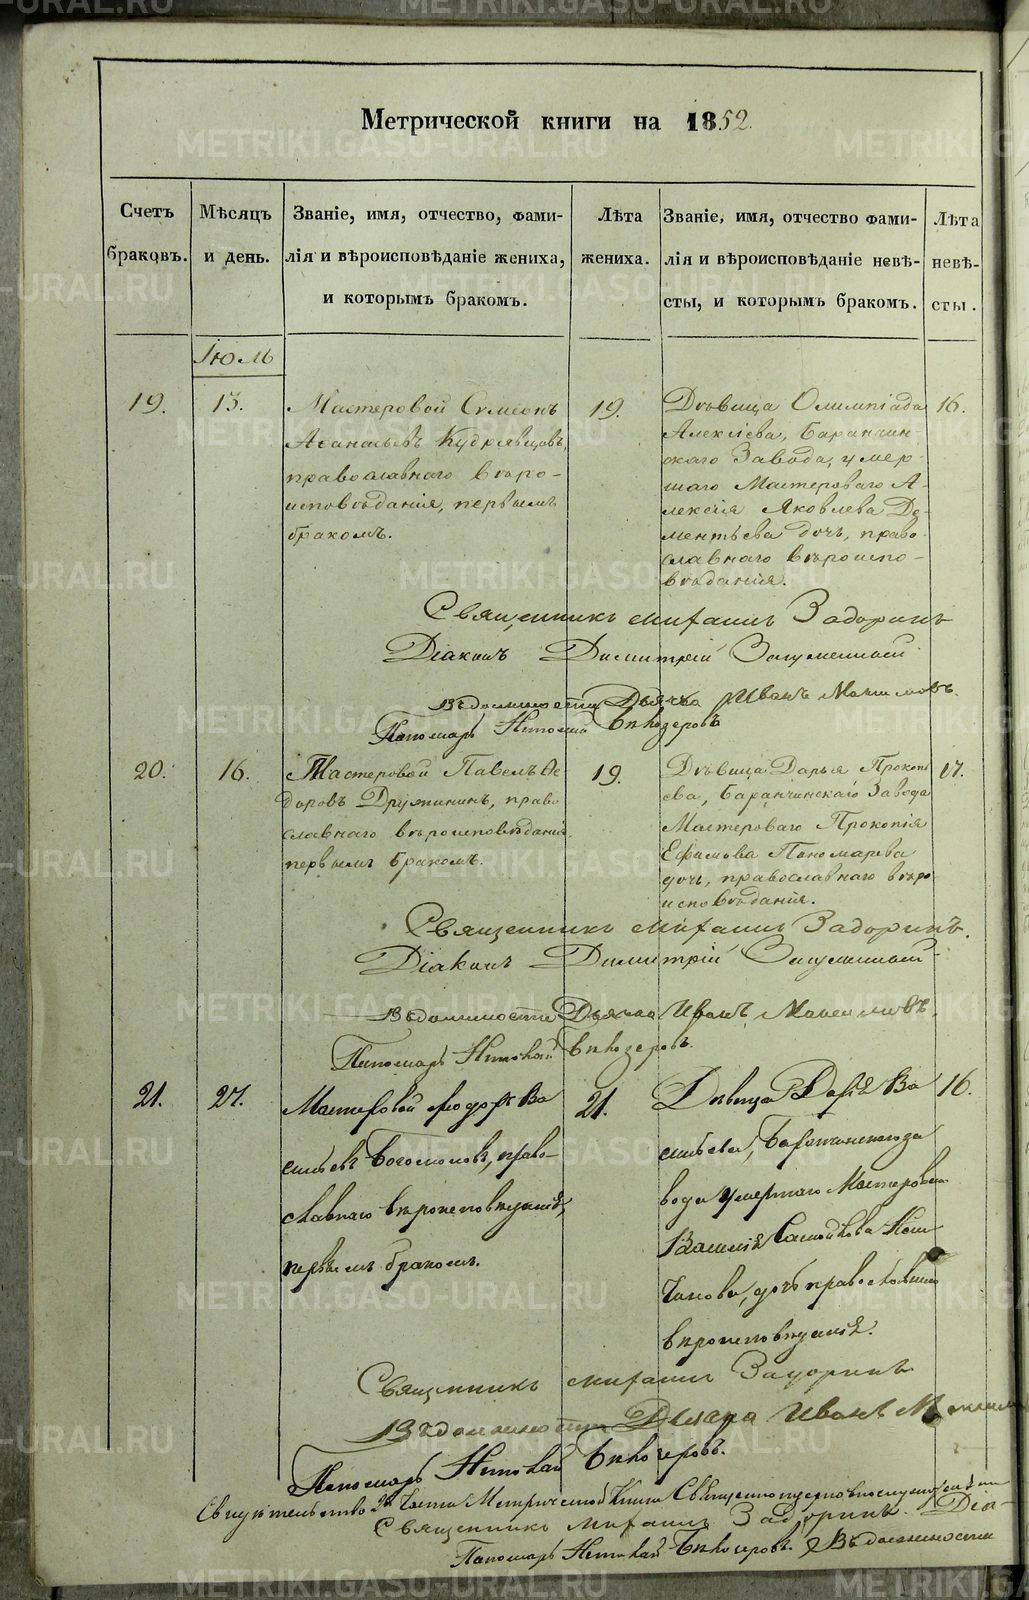 Метрической книги на 1852.
Счетъ браковъ.
Мѣсяцъ и день.
Званіе, имя, отчество, фами-
лія и вѣроисповѣданіе жениха,
и которымъ бракомъ.
Лѣта жениха.
Званіе, имя, отчество фами-
лія и вѣроисповѣданіе невѣ-
сты, и которымъ бракомъ.
Лѣта невѣ-
сты.
Іюль
19.
13.
Мастеровой Сѵмеонъ
Аѳанасьевъ Кудрявцовъ,
православнаго вѣро-
исповѣданія, первымъ
бракомъ.
19.
Дѣвица Олимпіада
Алексіева, Баранчин-
скаго Завода, умер-
шаго Мастероваго А-
лексія Яковлева Де-
ментьева дочь, право-
славнаго вѣроиспо-
вѣданія.
16.
Священникъ Михаилъ Задоринъ
Діаконъ Димитрій
Въ должности Дьячка Иванъ
Пономарь Николай Бѣлозеровъ
20.
16.
Мастеровой Павелъ Ѳе-
доровъ Дружининъ, право
славнаго вѣроисповѣданія
первымъ бракомъ.
19.
Дѣвица Дарья Прокопі
ева, Баранчинскаго Завода
Мастероваго Прокопія
Ефимова Пономарева
дочь, православнаго вѣро
исповѣданія.
17.
Священникъ Михаилъ Задоринъ.
Діаконъ Димитрій
Въ должности Дьячка Иванъ
Пономарь Николай Бѣлозеровъ.
21.
27.
Мастеровой Ѳеодоръ Ва
сильевъ Богомоловъ, право-
славнаго вѣроисповѣданія,
первымъ бракомъ.
21.
Дѣвица Дарья Ва
сильева, Баранчинскаго за
вода умершаго Мастероваго
Василія
дочь православнаго
вѣроисповѣданія.
16.
Священникъ Михаилъ Задоринъ
Въ должности Дьячка Иванъ
Пономарь Николай Бѣлозеровъ.
Священникъ Михаилъ Задоринъ. Діа-
Пономарь Николай Бѣлозеровъ. Въ должности
METRIKI.GASO-URAL.RU